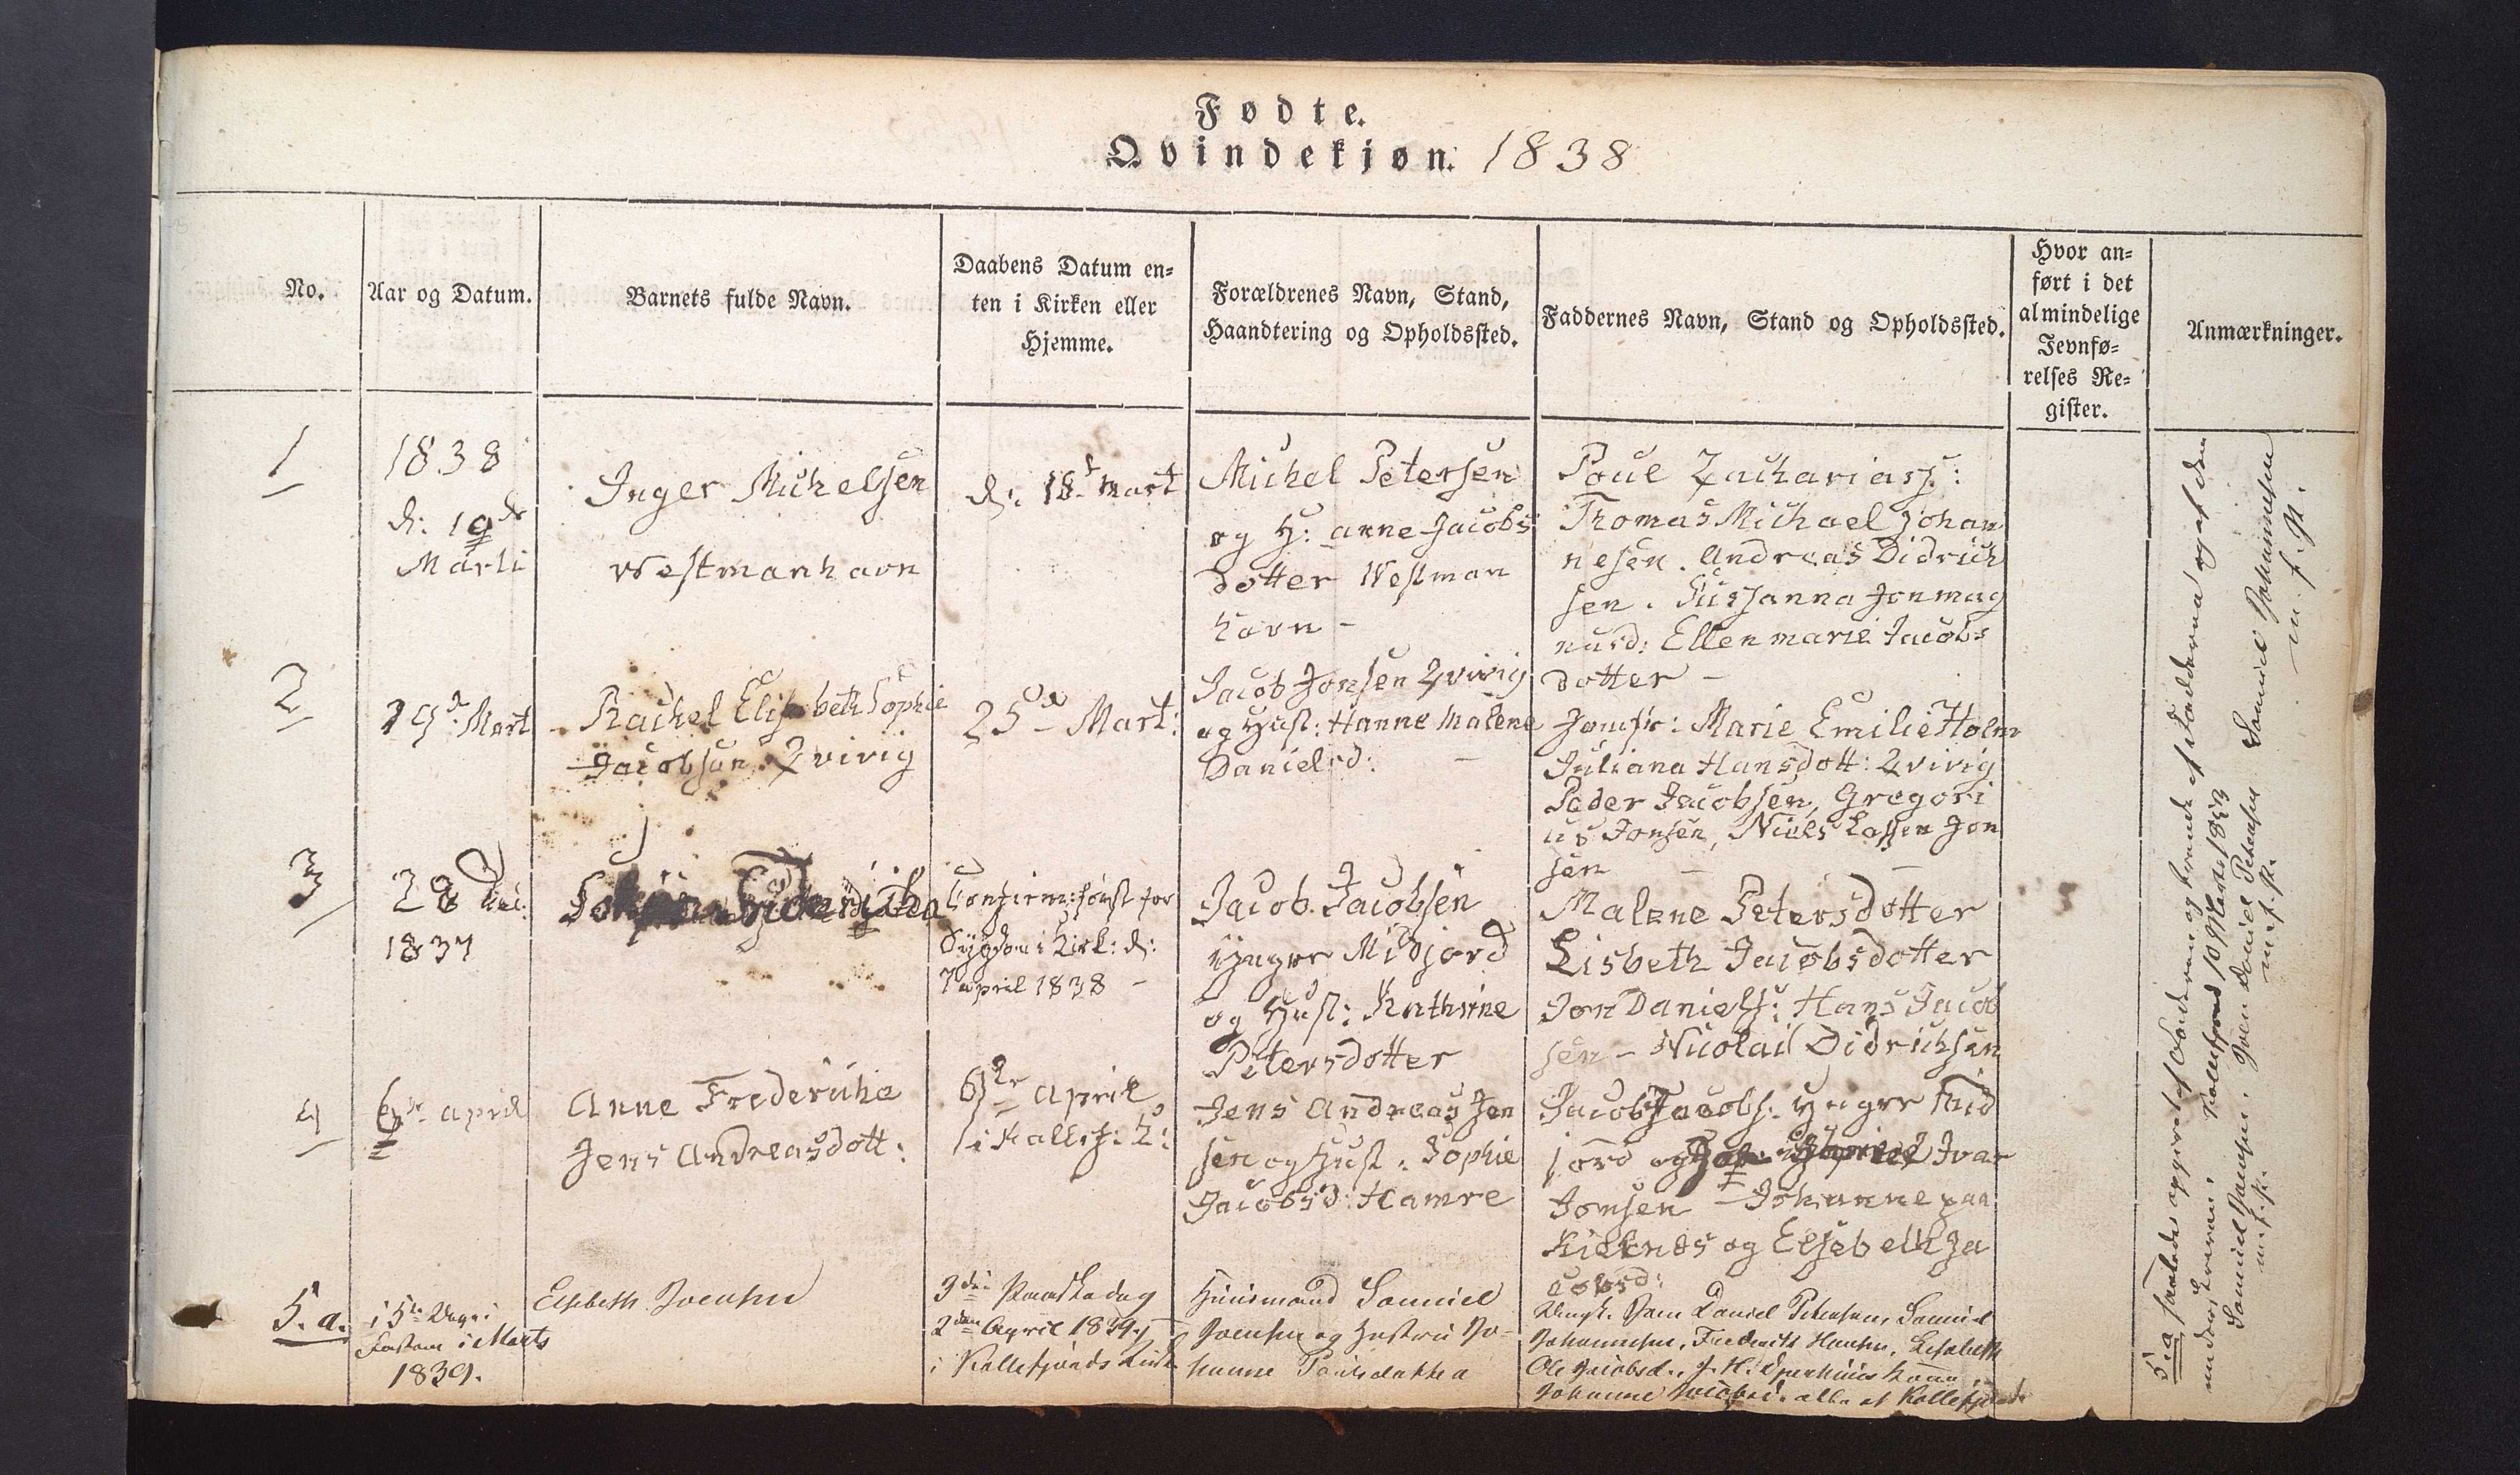 Fødte.
Qvindekjøn. 1838
No.
Aar og Datum.
Barnets fulde Navn.
Daabens Datum en-
ten i Kirken eller
Hjemme.
Forældrenes Navn, Stand,
Haandtering og Opholdssted.
Faddernes Navn, Stand og Opholdssted.
Hvor an-
ført i det
almindelige
Jevnfø-
relses Re-
gister.
Anmærkninger.
1
1838
d: 19de
Marti
Inger Michelsen
Westmanhavn
d: 18d Mart
Michel Petersen
og H: anne Jacobs
dotter Westman
havn -
Poul Zachariass:
Thomas Michael Johan
nesen. Andreas Didrich
sen. Sussanna Jonmag
nusd: Ellen marie Jacobs
dotter -
2
19d: Mart
Rachel Elisabeth Sophie
Jacobsen Qvivig
25d Mart:
Jacob Jonsen Qvivig
og Hust: Hanne Malene
Danielsd: -
Jomfr: Marie Emilie Holm
Juliana Hansdott: Qvivig
Peder Jacobsen, Gregori
us Jonsen, Niels Lassen Jon
sen -
3
28
1837
Confirm:
i Kirk: d:
7 april 1838 -
Jacob Jacobsen
yngre Midjord
og Hust: Kathrine
Petersdotter
Malene Petersdotter
Lisbeth Jacobsdotter
Jon Daniels: Hans Jacob
sen - Nicolai Didrichsen
4
6te april
Anne Frederiche
Jens Andreasdott:
6te april
i Kallef: K:
Jens Andreas Jen
sen og Hust. Sophie
Jacobsd: Hamre
Jacob Jacobs: yngre Mid
jord og Ivar
Jonsen - Johanne paa
og Elsebeth Ja
cobsd:
5. a.
i 5te Uge i
Fasten i Marts
1839.
Elsebeth Joensen
3die Paaskedag
2den April 1839
i Kollefjords Kirke
Huusmand Samuel
Joensen og Hustru Jo-
hanne Poulsdatter
Ungk. Joen Daniel Petersen, Samuel
Johannesen, Frederik Hansen, Elsebeth
Ole Jacobsd.,
Johanne Jacobsd. alle af Kollefjord
5.a saaledes opgivet af Faderen og af Fadderne og af dem
underskreven. Kollefjord 10 Marts 1853
Samuel Joensen. Joen Daniel Petersen Samuel Johannesen
m. f. P. m. f. P. m. f. P.